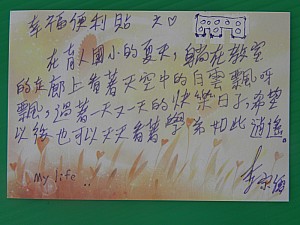 幸福便利貼
在育人國小的夏天，躺在教室
的走廊上看著天空中的白雲飄呀
飄，過著一天又一天的快樂日子，希望
以後也可以天天看著 學 弟如此逍遙。
My life ..
李